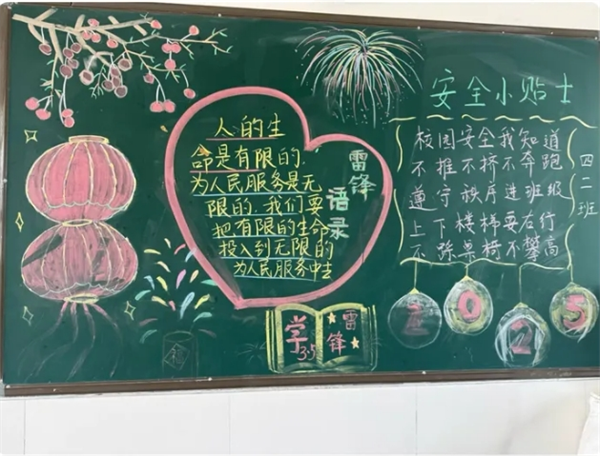 人的生
命是有限的.
为人民服务是无
限的.我们要
把有限的生命
投入到无限的
为人民服务中去
雷锋
语录
学
3.5
雷
锋
安全小贴士
校园安全我知道
不推不挤不奔跑
遵守秩序进班级
上下楼梯要右行
不踩桌椅不攀高
四二班
2025